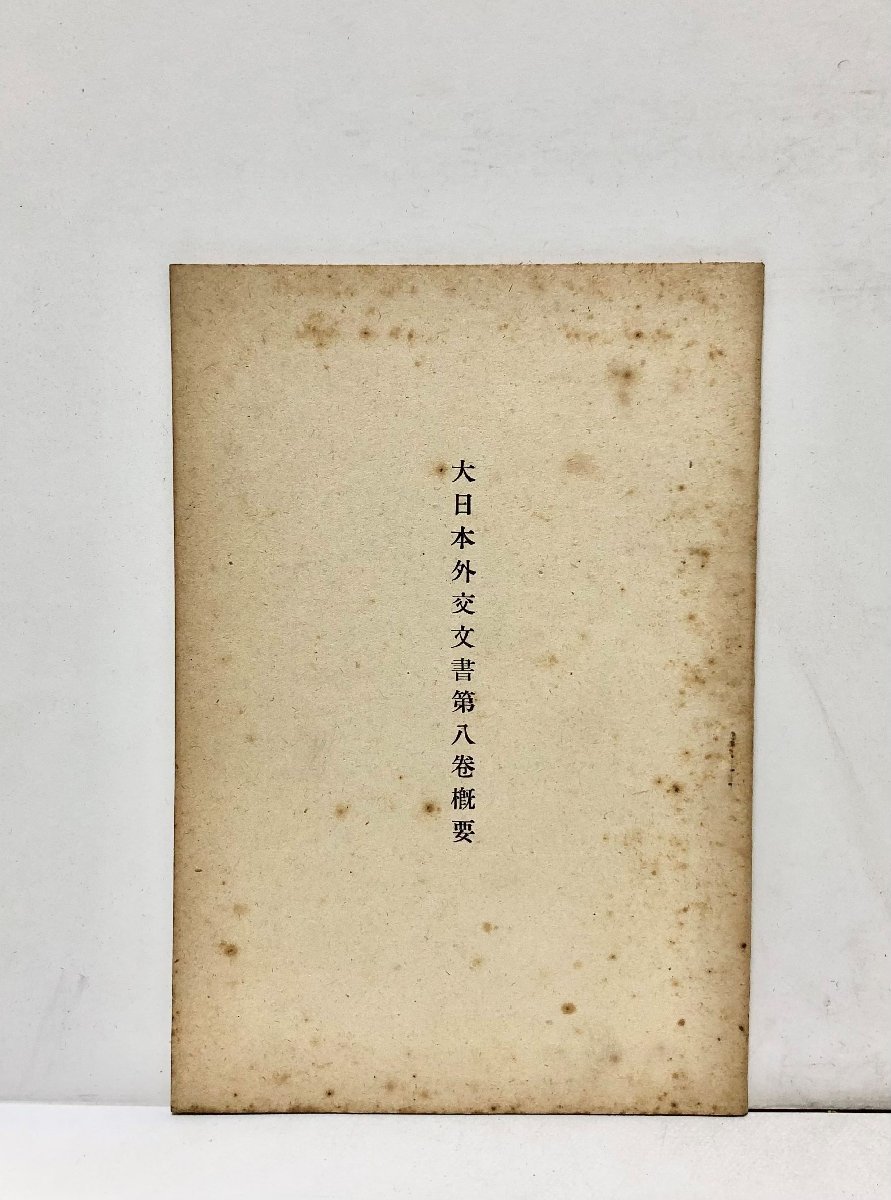 大日本外交文書第八卷概要